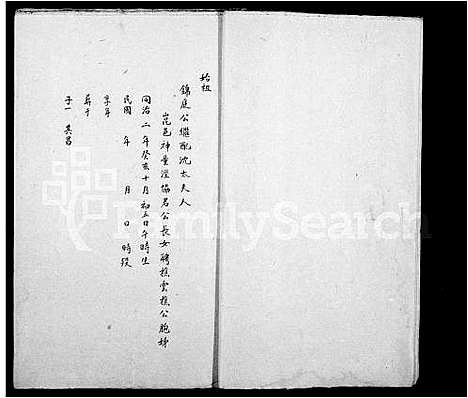 始祖
錦庭公繼配沈太夫人
崑邑神童涇協君公長女 雲樵公胞姊
同治二年癸亥十月初五日午時生
民國 年 月 日 時歿
享年
葬于
子一 英昌
FamilySearch